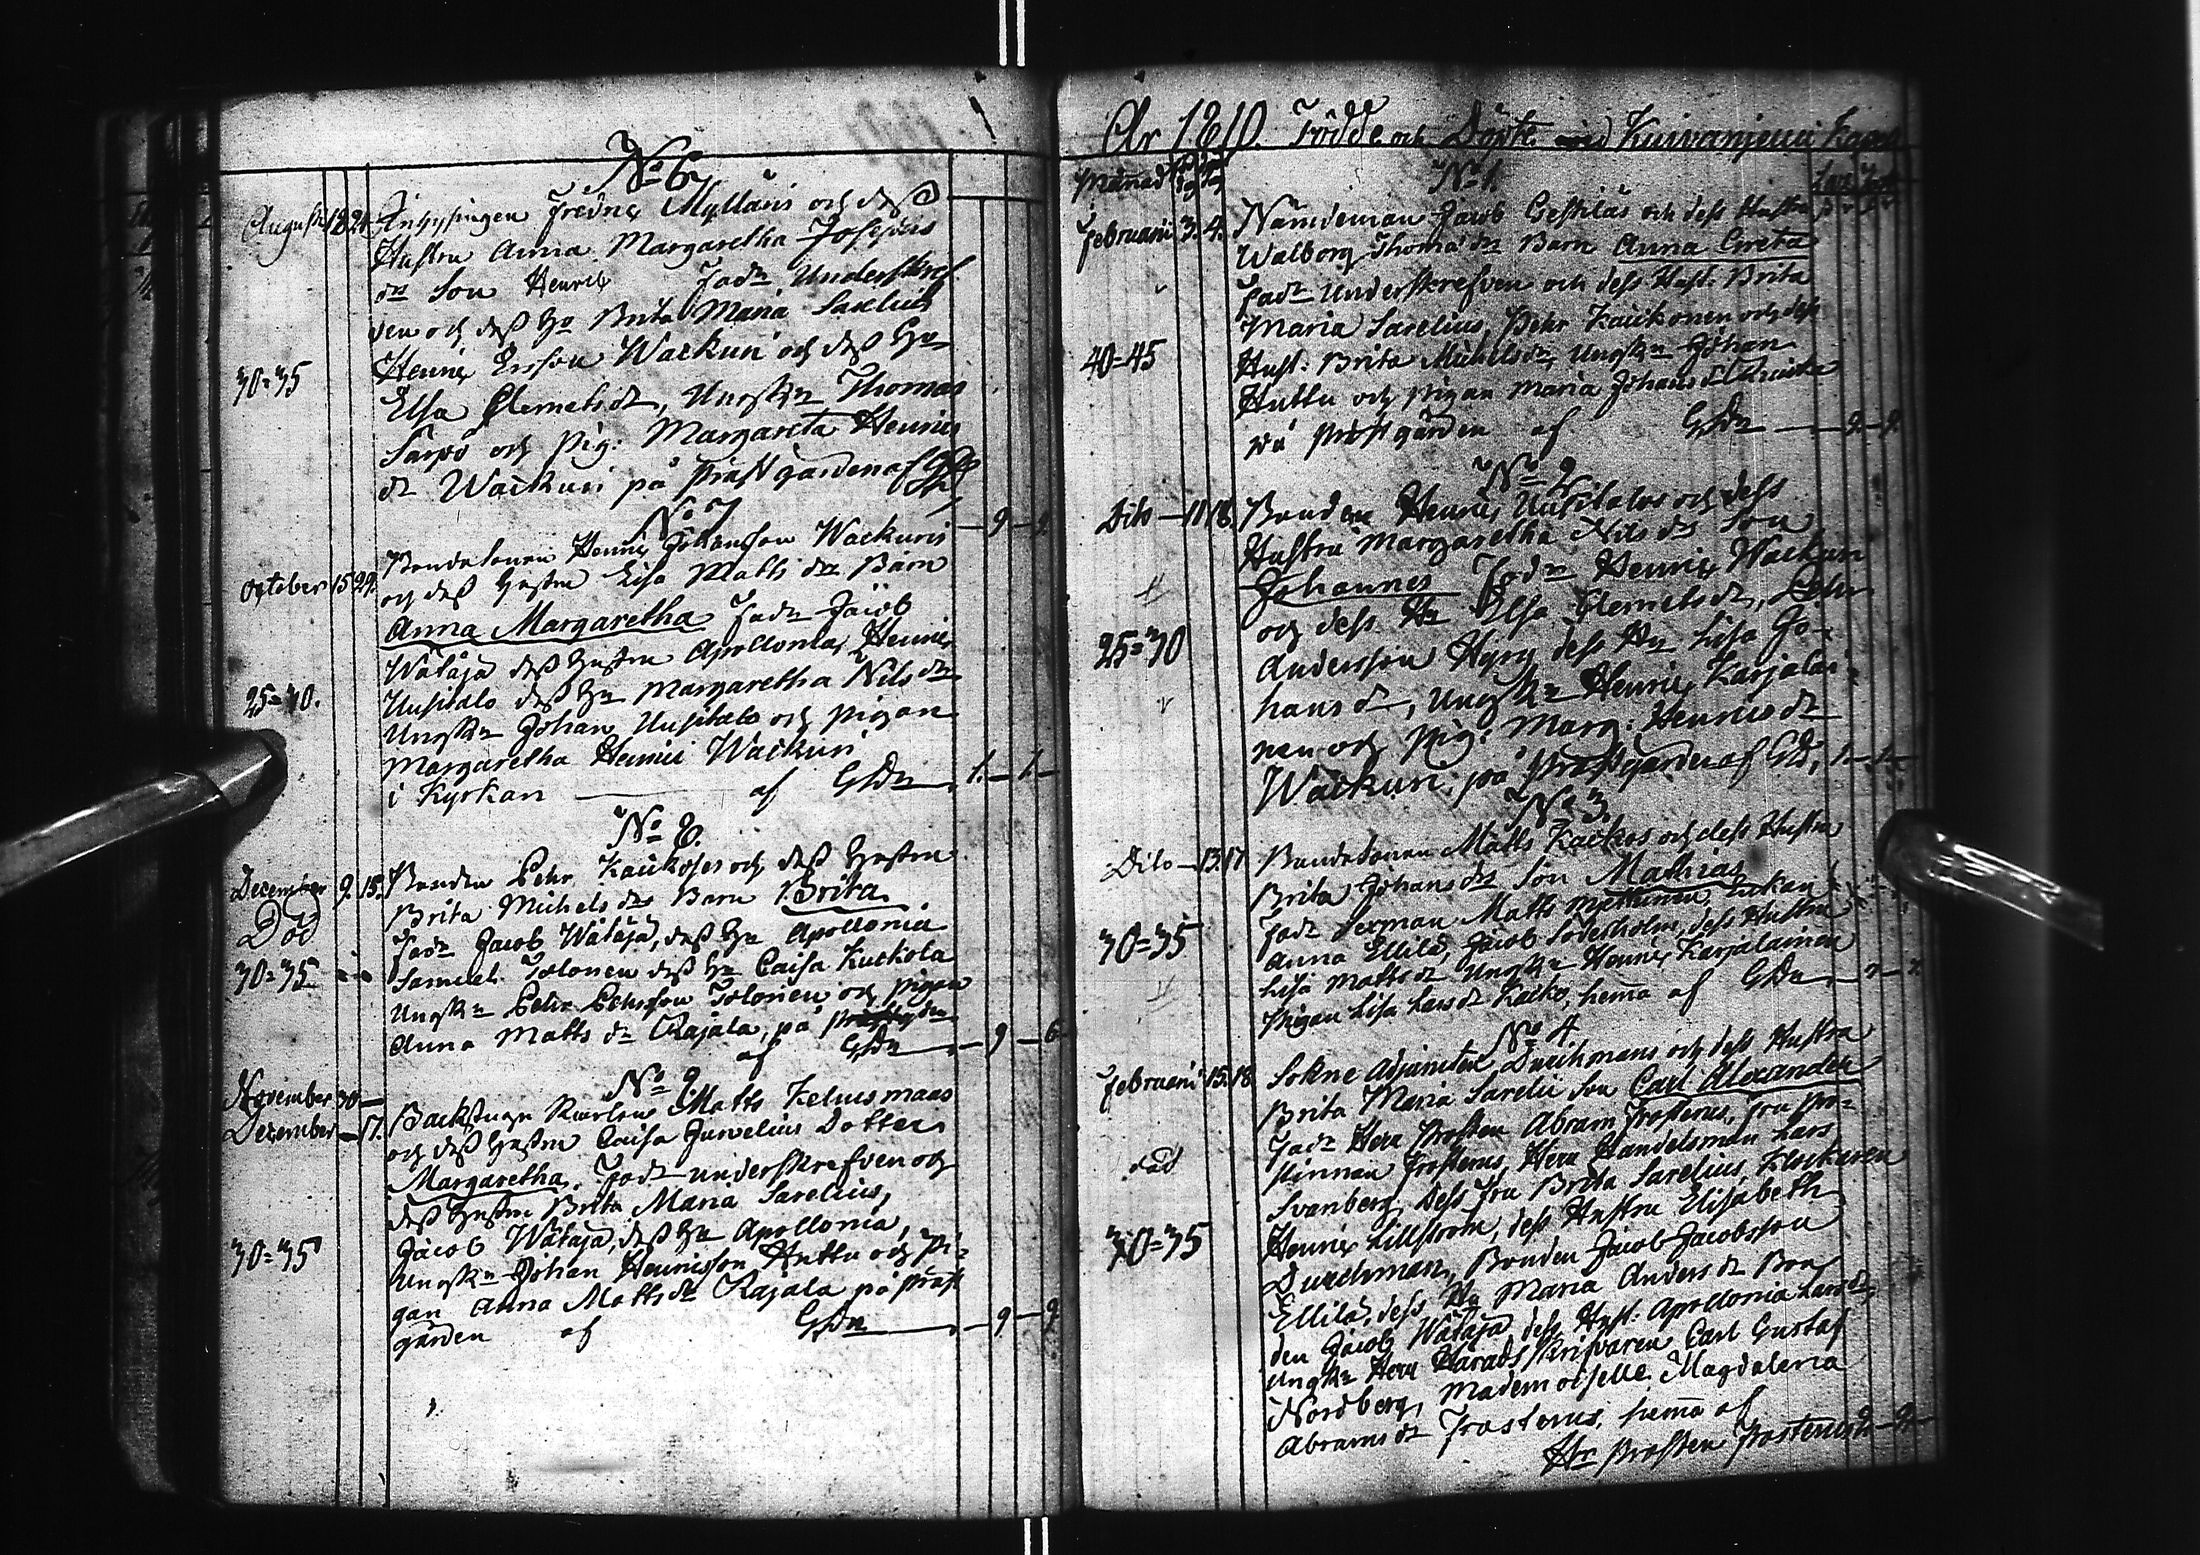 No 6
Augusti 18 24 Inhysingen Fredric Mylläris och dess
Hustru Anna Margaretha Josephs
dr Son Henric Fadr Underskref
ven och dess Hu Brita Maria Sarelius
Henric Ersson Wackuri och dess Hu
30=35
Elsa Clemetsdr, Ungkn Thomas
och Pig: Margareta Henrics
dr Wackuri på Prästgården af
No 7 9 9
October 15 22 Bondesonen Henric Johansson Wackuris
och dess Hustru Lisa Matts dr Barn
Anna Margaretha Fadr Jacob
Wataja dess Hustru Apollonia, Henric
25=30.
Uusitalo dess Hu Margaretha Nilsdr
Ungkn Johan Uusitalo och pigan
Margaretha Henrici Wackuri
i Kyrkan af GDn 1. 1.
No 8.
December 9. 15. Bonden Pehr Kaickoses och dess Hustru
Död
Brita Michels dr Barn Brita
Fadr Jacob Wataja, dess Hu Apollonia
30=35
Samuel Tolonen dess Hu Caisa Kuckola
Ungkn Pehr Pehrsson Tolonen och pigan
Anna Matts dr Rajala, på
af GDn 9 6
No 9.
November 30
Backstugu Matts Kelus maas
December 17.
och dess Hustru Caisa Juvelius Dotter
Margaretha. Fadr underskrefven och
dess Hustru Brita Maria Sarelius,
Jacob Wataja, dess Hu Apollonia,
30=35
Ungkn Johan Henricsson Huttu och Pi-
gan Anna Mattsdr Rajala på präst
gården af GDn 9 9
År 1810. Födde och Döpte Kuivaniemi
Månad No 1.
Februarii 3. 4. Nämdeman Jacob och dess Hustru
Walborg Thomæ dr Barn Anna Greta
Fadr Underskrefven och dess Hust: Brita
Maria Sarelius, Pehr Kaickonen och dess
40=45
Hust: Brita Michelsdr, Ungkn Johan
Huttu och pigan Maria Johansdr
på Prästgården af GDn 9 9
No 2
Dito 11 18 Bonden Henric Uusitalos och dess
Hustru Margaretha Nils dr Son
Johannes Fadr Henric Wackuri
och dess Hu Elsa Clemetsdr, Pehr
25=30
Andersson Hyry dess Hu Lisa Jo-
hansdr, Ungkn Henric Karjalai-
nen och Pig: Marg: Henricsdr
Wackuri på Prästgården af GD, 1 1
No 3.
Dito 13 17 Bondesonen Matts Kaickos och dess Hustru
Brita Johans dr Son Mathias
Fadr Matts Enkan
30=35
Anna Ellilä, Jacob Söderholm, dess Hustru
Lisa Mattsdr Ungkn Henric Karjalainen
Pigan Lisa Larsdr Kaicko, hema af GDn
No 4
Februarii 15. 18. Sokne Adjuncten Durchmans och dess Hustru
Brita Maria Sarelii Son Carl Alexander
Fadr Herr Prosten Abram Frosterus, Fru Pro-
död
stinnan Frosterus, Herr Handelsman Lars
Svanberg, dess Fru Brita Sarelius, Klockaren
Henric Lillström, dess Hustru Elisabeth
30=35
Durchman, Bonden Jacob Jacobsson
Ellilä, dess Hu Maria Andersdr Bon
den Jacob Wataja dess Hust: Apollonia Larsdr,
Ungkn Herr Häradsskrifvaren Carl Gustaf
Nordberg, Mademoiselle Magdalena
Abramsdr Frosterus, hema af
Hr Prosten Frosterus